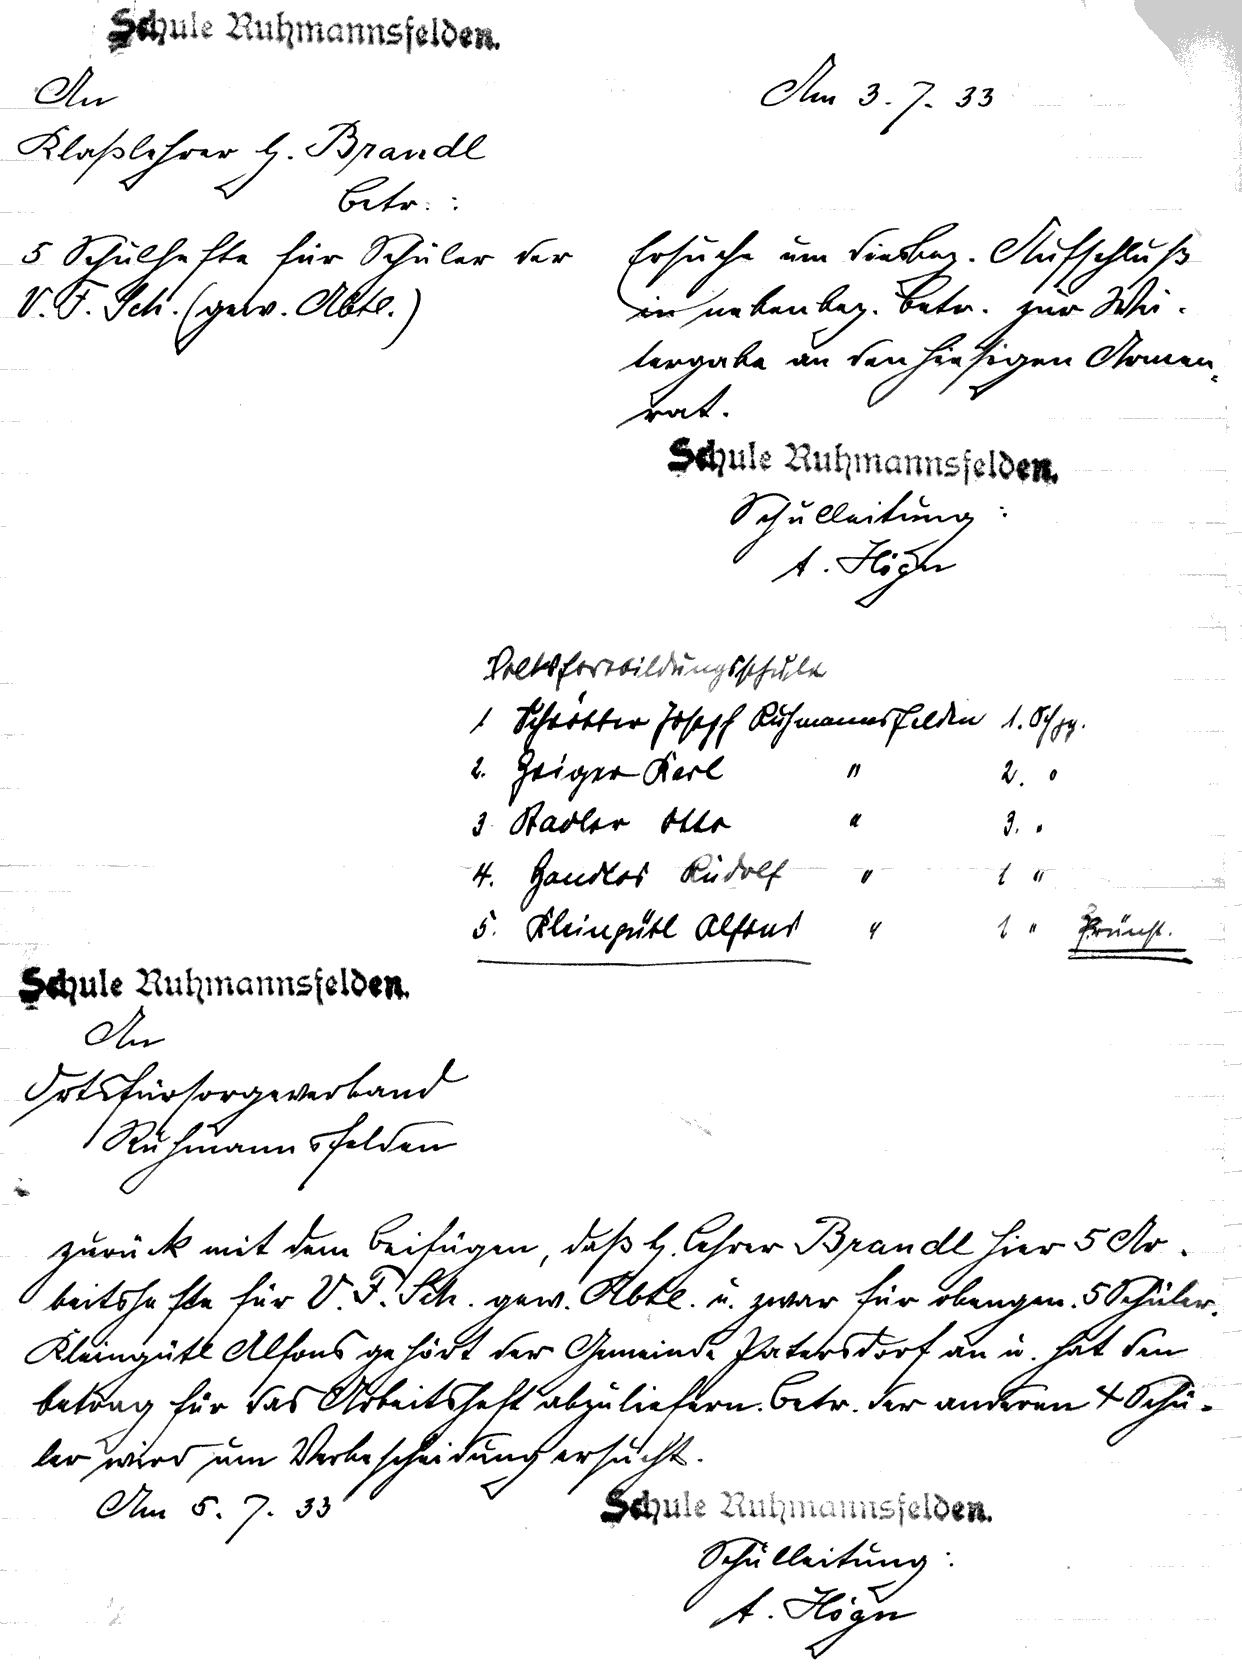 Schule Ruhmannsfelden.
An
Klaßlehrer H. Brandl
Betr. :
5 Schulhefte für Schüler der
V. F. Sch. (gew. Abtl.)
Am 3. 7. 33
Ersuche um diesbez. Aufschluß
in nebenbez. Betr. zur Wei-
tergabe an den hiesigen Armen-
rat.
Schule Ruhmannsfelden.
Schulleitung :
A. Högn
Volksfortbildungsschule
1 Schrötter Joseph Ruhmannsfelden 1. Schjg.
2. Geiger Karl " 2. "
3 Stadler Otto " 3. "
4. Handlos Rudolf " 1 "
5. Kleingütl Alfons " 1 "
Schule Ruhmannsfelden.
An
Ortsfürsorgeverband
Ruhmannsfelden
zurück mit dem Beifügen, daß H. Lehrer Brandl hier 5 Ar-
beitshefte für V. F. Sch. gew. Abtl. u. zwar für obengen. 5 Schüler.
Kleingütl Alfons gehört der Gemeinde Patersdorf an u. hat den
Betrag für das Arbeitsheft abzuliefern. Betr. der anderen 4 Schü-
ler wird um Verbescheidung ersucht.
Am 5. 7. 33
Schule Ruhmannsfelden.
Schulleitung :
A. Högn